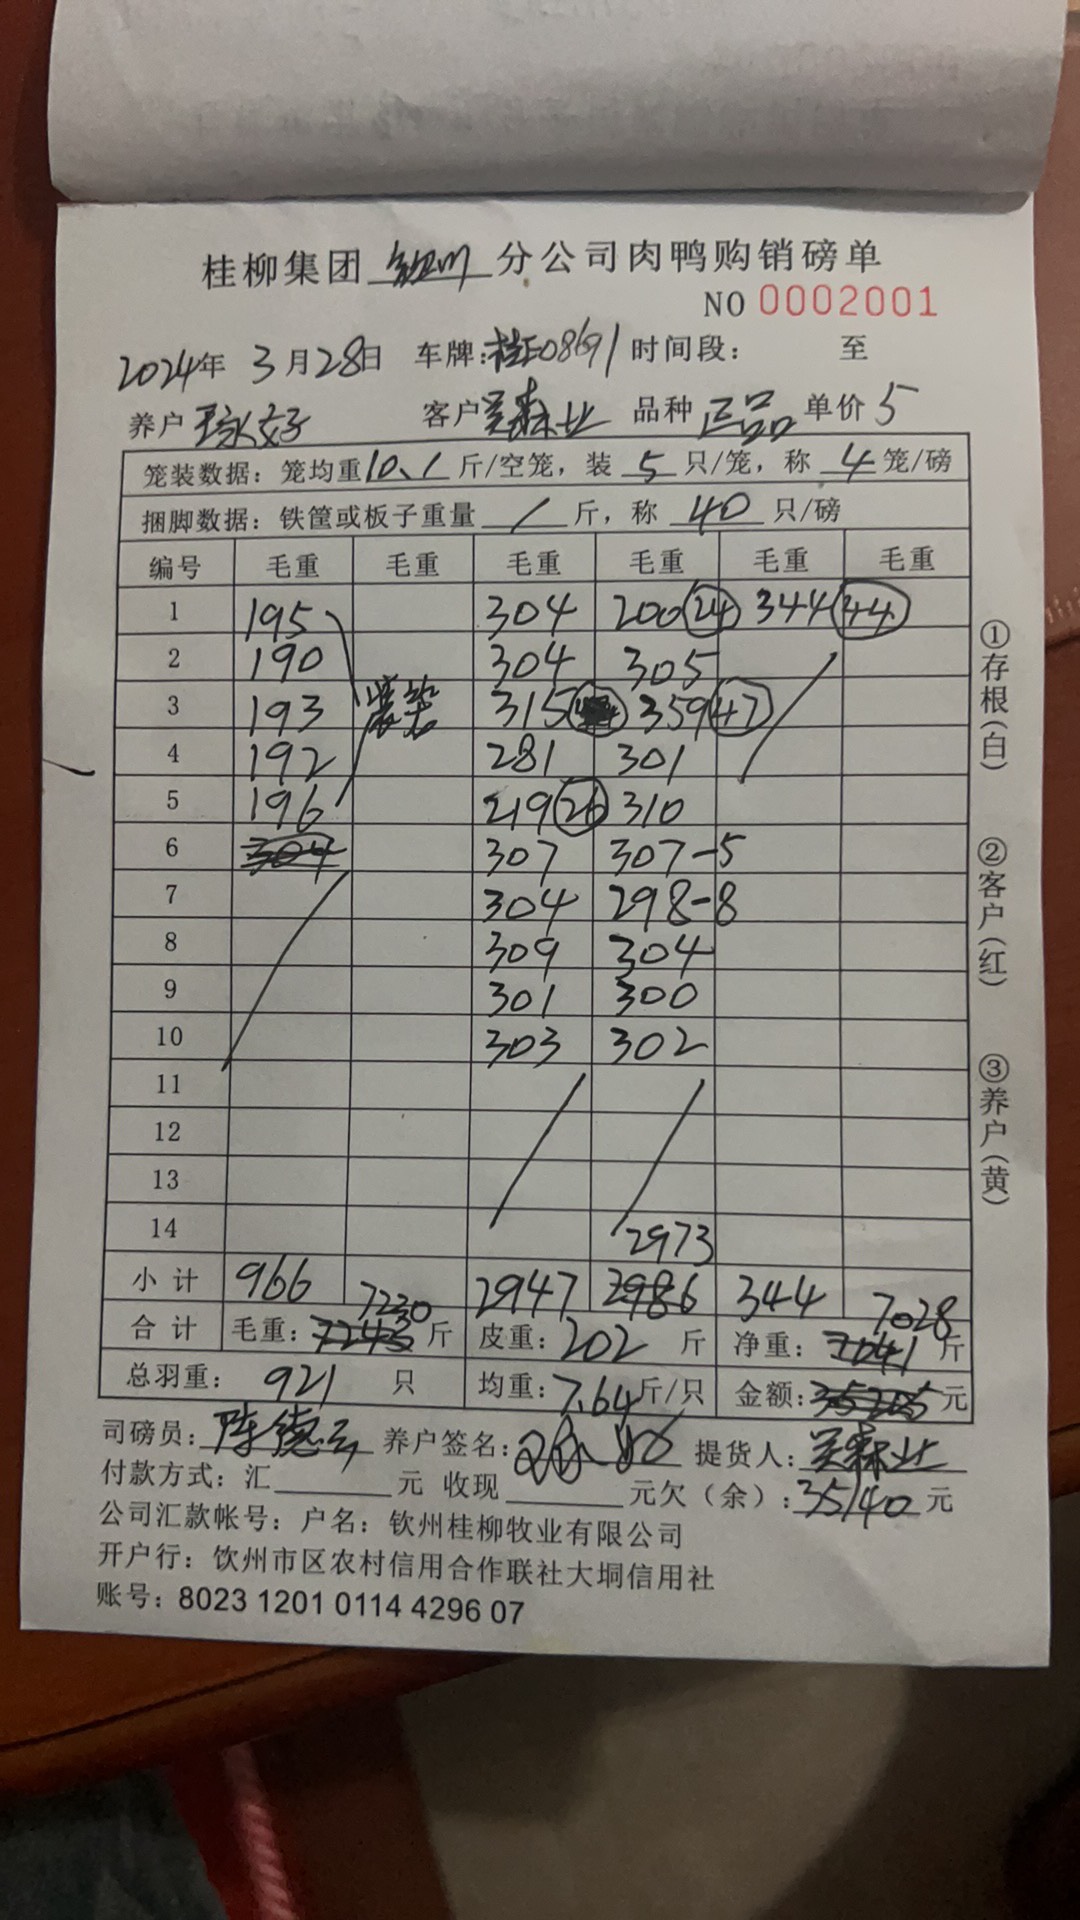 桂柳集团 钦州 分公司肉鸭购销磅单
NO 0002001
2024年 3月28日 车牌:桂E08691 时间段: 至
养户 客户 吴森 品种 正品 单价 5
笼装数据:笼均重 10.1 斤/空笼,装 5 只/笼,称 4 笼/磅
捆脚数据:铁筐或板子重量 / 斤,称 40 只/磅
编号 毛重 毛重 毛重 毛重 毛重 毛重
1 195 304 200 24 344 44
2 190 304 305
3 193 装笼 315 359 47
4 192 281 301
5 196 219 26 310
6 304 307 307-5
7 304 298-8
8 309 304
9 301 300
10 303 302
11
12
13
14 2973
小计 966 2947 2986 344
合计 毛重: 7243 7230 斤 皮重: 202 斤 净重: 7041 7028 斤
总羽重: 921 只 均重: 7.64 斤/只 金额: 35205 元
司磅员: 陈德 养户签名: 提货人: 吴森
付款方式:汇 元 收现 元欠(余): 35140 元
公司汇款帐号:户名:钦州桂柳牧业有限公司
开户行:饮州市区农村信用合作联社大垌信用社
账号:8023 1201 0114 4296 07
①存根(白) ②客户(红) ③养户(黄)